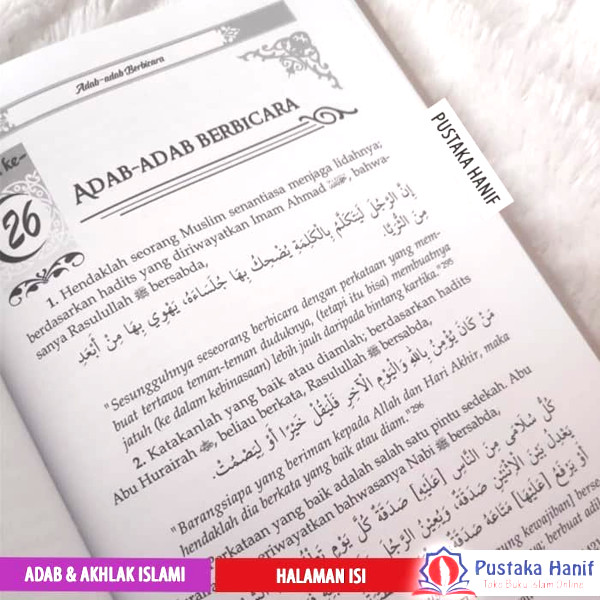 Adab-adab Berbicara
ke-
26
ADAB-ADAB BERBICARA
1. Hendaklah seorang Muslim senantiasa menjaga lidahnya;
berdasarkan hadits yang diriwayatkan Imam Ahmad, bahwa-
sanya Rasulullah ﷺ bersabda,
إِنَّ الرَّجُلَ لَيَتَكَلَّمُ بِالْكَلِمَةِ يُضْحِكُ بِهَا جُلَسَاءَهُ، يَهْوِي بِهَا مِنْ أَبْعَدِ
مِنَ الثُّرَيَّا.
"Sesungguhnya seseorang berbicara dengan perkataan yang mem-
buat tertawa teman-teman duduknya, (tetapi itu bisa) membuatnya
jatuh (ke dalam kebinasaan) lebih jauh daripada bintang kartika."295
2. Katakanlah yang baik atau diamlah; berdasarkan hadits
Abu Hurairah, beliau berkata, Rasulullah ﷺ bersabda,
مَنْ كَانَ يُؤْمِنُ بِاللهِ وَالْيَوْمِ الْآخِرِ فَلْيَقُلْ خَيْرًا أَوْ لِيَصْمُتْ.
"Barangsiapa yang beriman kepada Allah dan Hari Akhir, maka
hendaklah dia berkata yang baik atau diam."296
Perkataan yang baik adalah salah satu pintu sedekah. Abu
meriwayatkan bahwasanya Nabi ﷺ bersabda,
كُلُّ سُلَامَى مِنَ النَّاسِ [عَلَيْهِ] صَدَقَةٌ كُلَّ يَوْمٍ
يَعْدِلُ بَيْنَ الْاِثْنَيْنِ صَدَقَةٌ وَيُعِينُ الرَّجُلَ
أَوْ يَرْفَعُ [عَلَيْهَا] مَتَاعَهُ صَدَقَةٌ
kewajiban] berse
berbuat adil
PUSTAKA HANIF
ADAB & AKHLAK ISLAMI
HALAMAN ISI
Pustaka Hanif
Toko Buku Islam Online